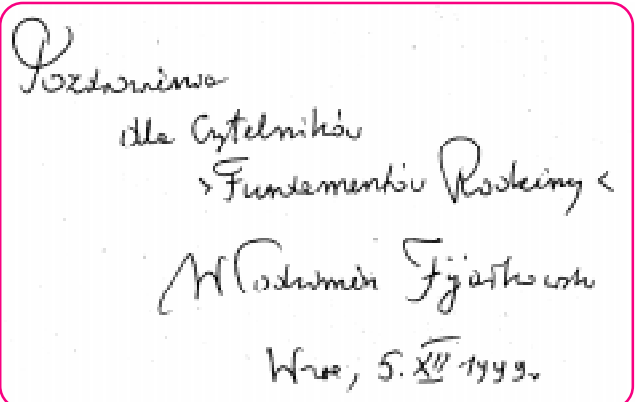 Pozdrowienia
dla Czytelników
>Fundamentów Rodziny<
Włodzimierz Fijałkowski
Wwe, 5.XII 1999.